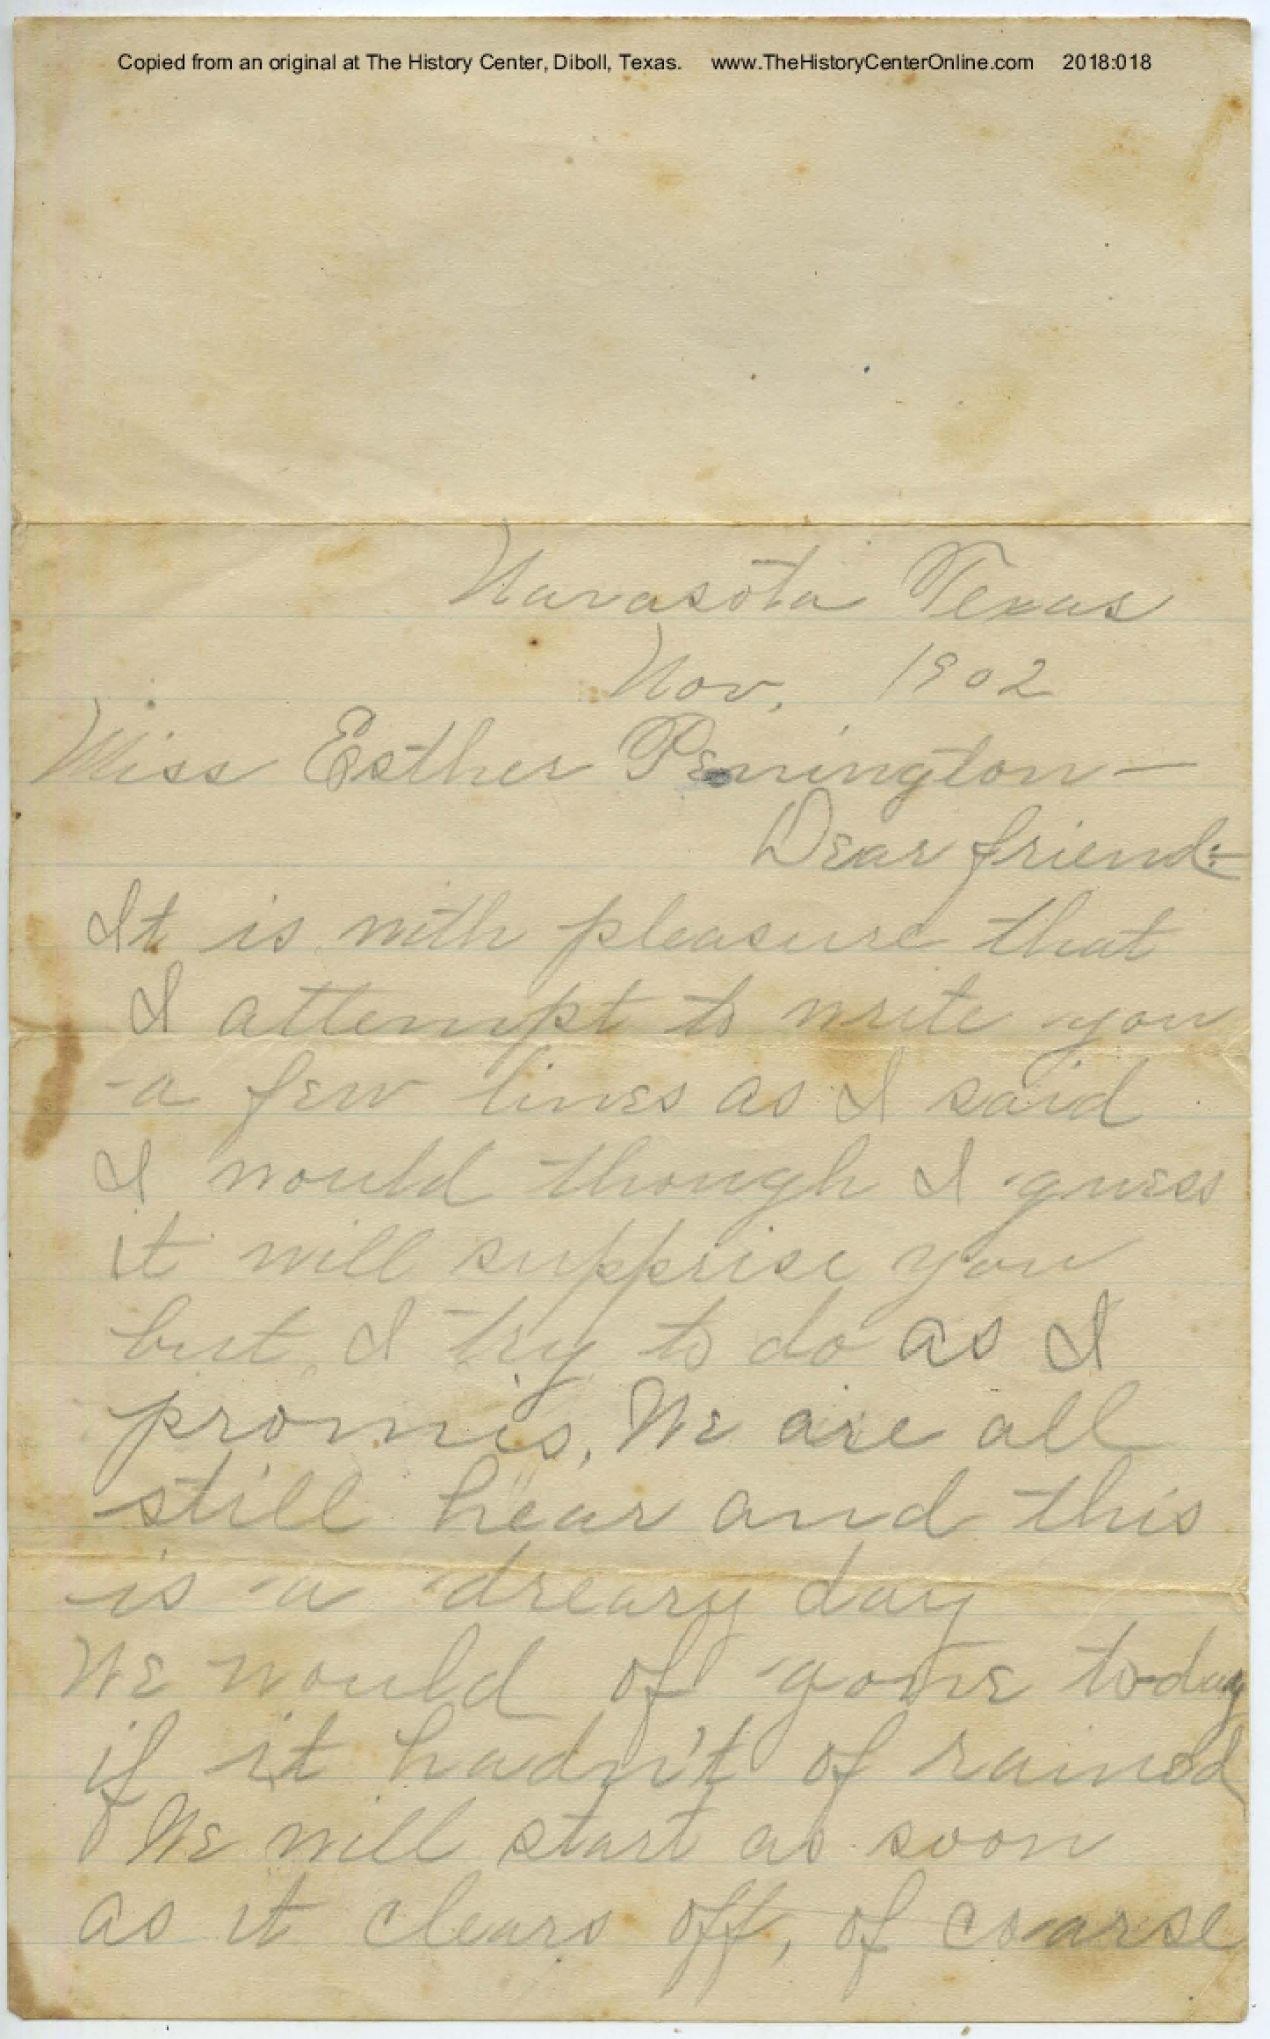 Copied from an original at The History Center, Diboll, Texas. www.TheHistoryCenterOnline.com 2018:018
Navasota Texas
Nov, 1902
Miss Esther Penington—
Dear friend:-
It is with pleasure that
I attempt to write you
a few lines as I said
I would though I guess
it will supprise you
but I try to do as I
promis, We are all
still hear and this
is a dreary day
We would of gone to-day
if it hadn't of rained
We will start as soon
as it clears off, of coarse